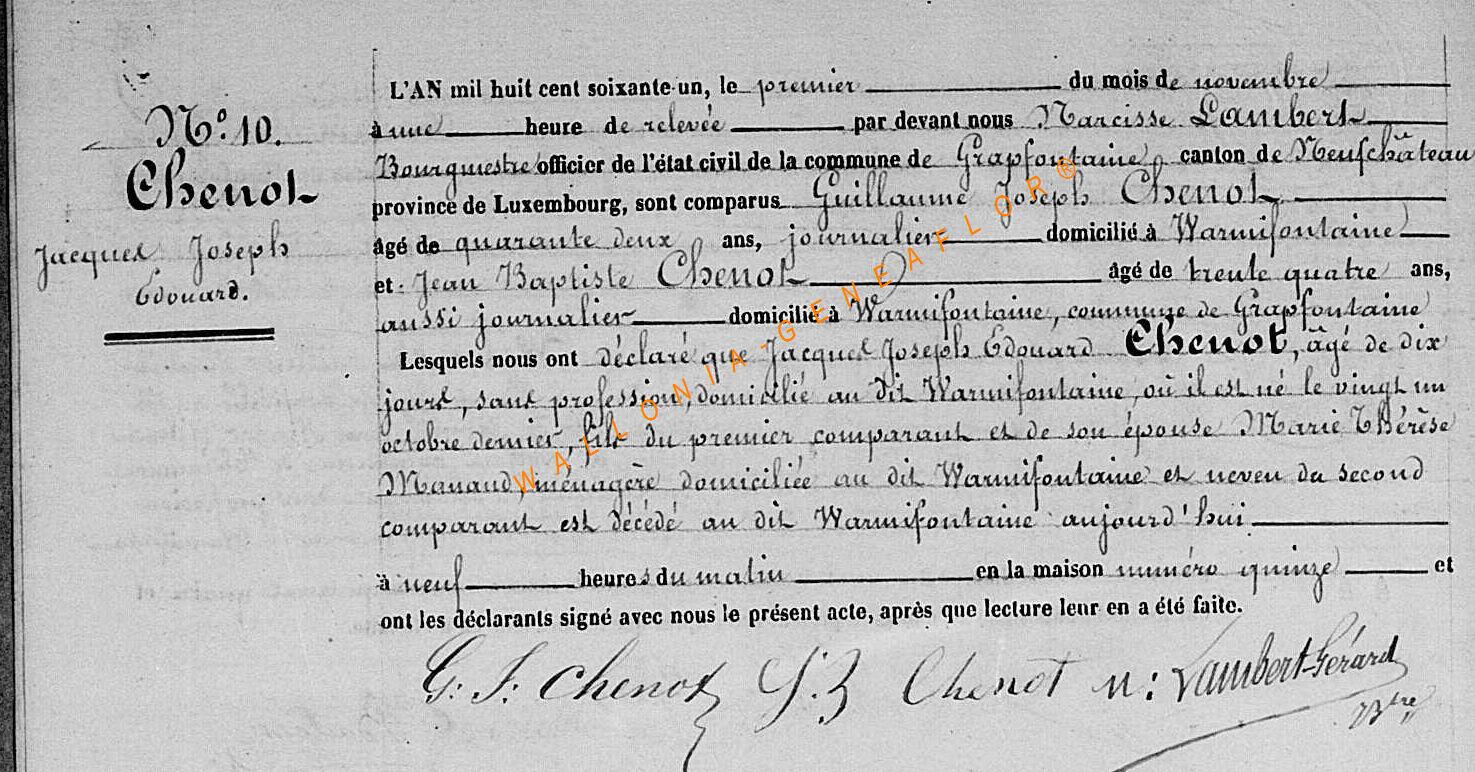 L'AN mil huit cent soixante-un, le premier du mois de novembre
à une heure de relevée par devant nous Narcisse Lambert
Bourgmestre officier de l'état civil de la commune de Grapfontaine, canton de Neufchâteau
province de Luxembourg, sont comparus Guillaume Joseph Chenot
âgé de quarante deux ans, journalier domicilié à Warmifontaine
et Jean Baptiste Chenot âgé de trente quatre ans,
aussi journalier domicilié à Warmifontaine, commune de Grapfontaine
Lesquels nous ont déclaré que Jacques Joseph Edouard Chenot, âgé de dix
jours, sans profession, domicilié au dit Warmifontaine, où il est né le vingt un
octobre dernier, fils du premier comparant et de son épouse Marie Thérèse
Manand, ménagère domiciliée au dit Warmifontaine et neveu du second
comparant est décédé au dit Warmifontaine aujourd'hui
à neuf heures du matin en la maison numéro quinze et
ont les déclarants signé avec nous le présent acte, après que lecture leur en a été faite.
N° 10.
Chenot
Jacques Joseph
Edouard.
G: J: Chenot J. B Chenot N: Lambert-Gérard
Btre
WALLONIA-GENEAFLOR®